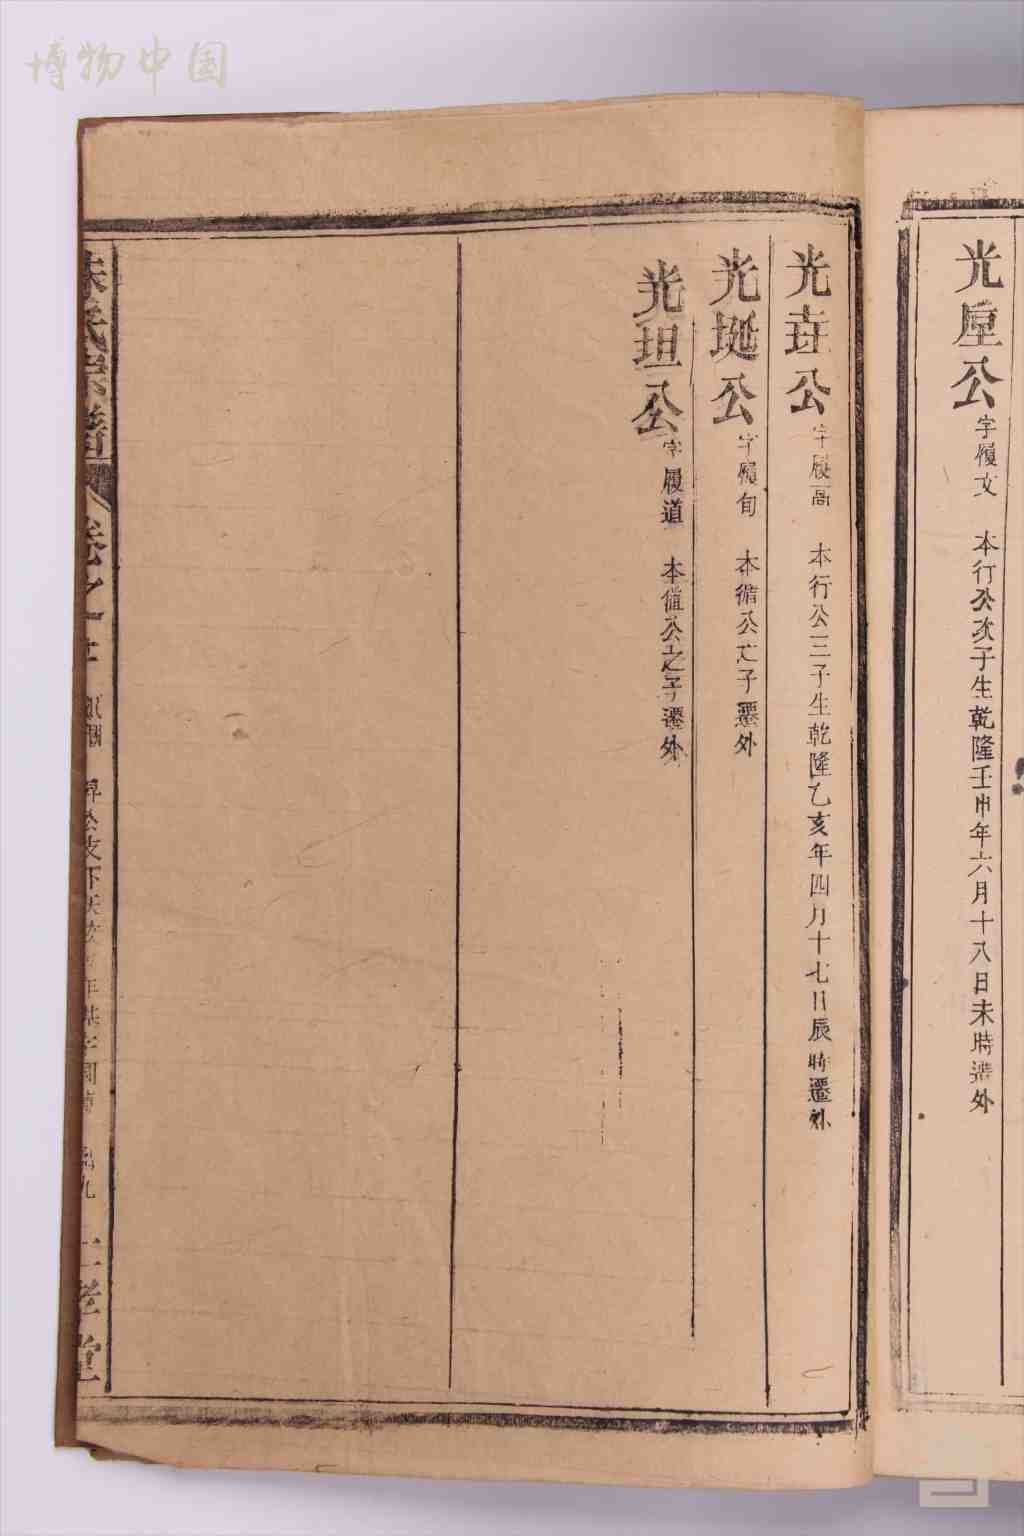 博物中国
光垕公 字履文 本行公次子生乾隆壬申年六月十八日未時遷外
光垚公 字履高 本行公三子生乾隆乙亥年四月十七日辰時遷外
光埏公 字履旬 本循公之子遷外
光坦公 字履道 本值公之子遷外
朱氏宗譜 卷之
仁孝堂